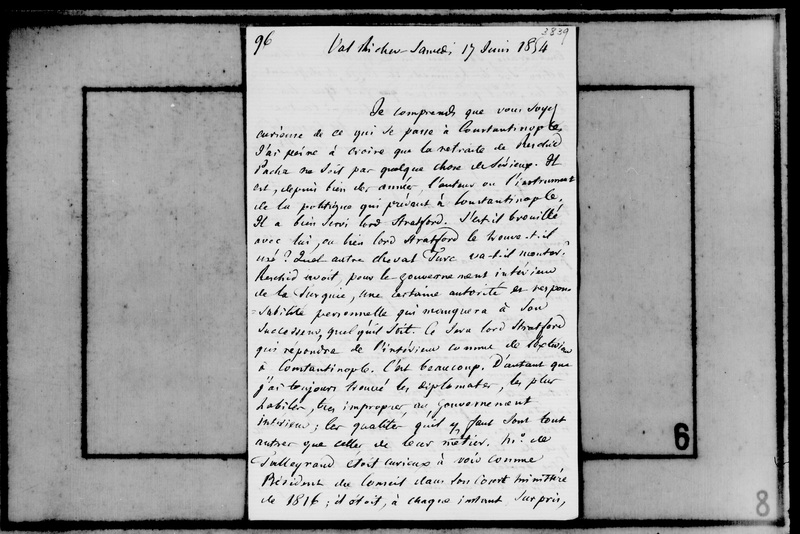 96
2839
Val Richer Samedi 17 Juin 1854
Je comprends que vous soyez
curieuse de ce qui se passe à Constantinople.
J'ai peine à croire que la retraite de Reschid
Pacha ne soit pas quelque chose de sérieux. Il
est, depuis bien des années, l'auteur ou l'instrument
de la politique qui prévaut à Constantinople.
Il a bien servi lord Stratford. S'est-il brouillé
avec lui, ou bien lord Stratford le trouve-t-il
usé ? Quel autre cheval Turc va-t-il monter ?
Reschid avoit, pour le gouvernement intérieur
de la Turquie, une certaine autorité et respon
-sabilité personnelle qui manquera à son
successeur, quel qu'il soit. Ce sera lord Stratford
qui répondra de l'intérieur comme de l'extérieur
à Constantinople. C'est beaucoup. D'autant que
j'ai toujours trouvé les diplomates, les plus
habiles, très impropres au gouvernement
intérieur ; les qualités qu'il y faut sont tout
autres que celles de leur métier. M. de
Talleyrand étoit curieux à voir comme
Président du Conseil dans son court ministère
de 1815 ; il étoit, à chaque instant surpris,
6
8